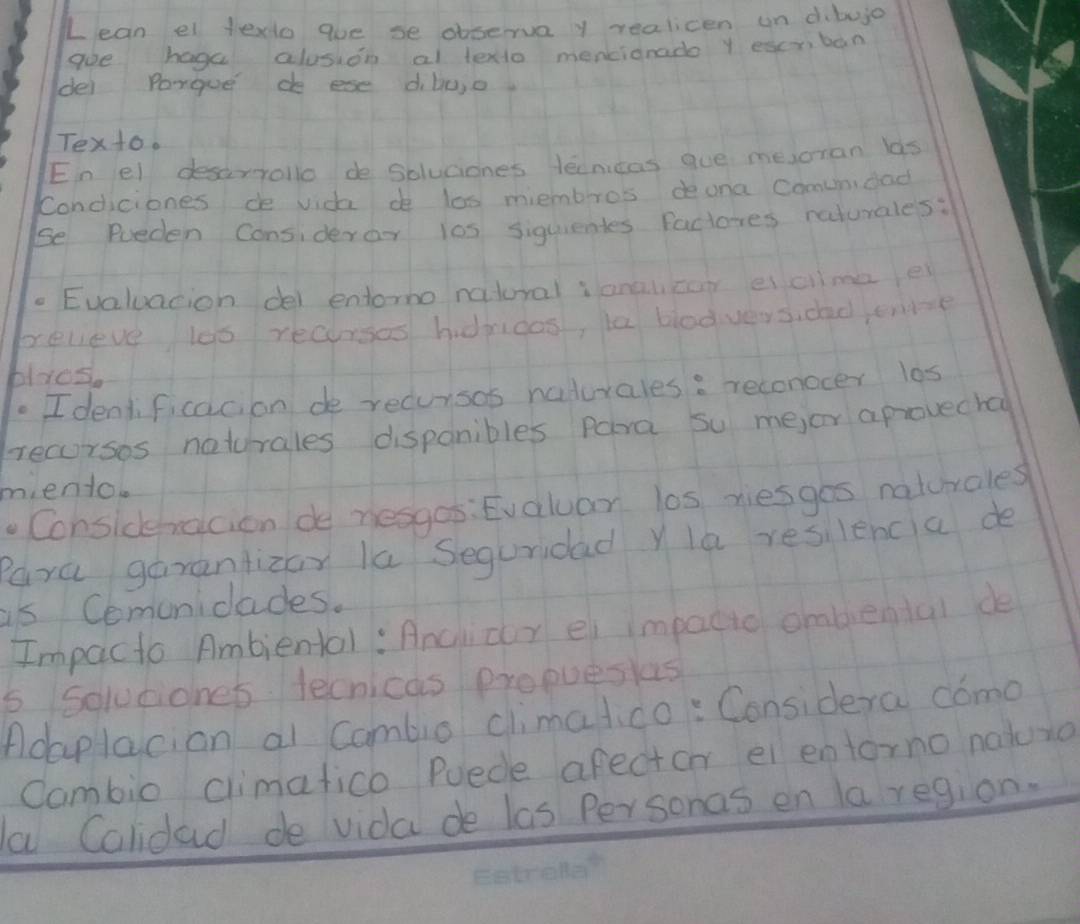 Lean el texto que se observa y realicen un dibujo
que haga alusión al texto mencionado y escriban
del Porqué de ese dibujo.
Texto.
En el desarrollo de soluciones técnicas que mejoran las
condiciones de vida de los miembros de una Comunidad
se Pueden Considerar los siguientes factores naturales:
• Evaluacion del entorno natural: analizar el clima, el
relieve, los recursos hidricos, la biodiversidad, entre
otros.
• Identificacion de recursos naturales: reconocer los
recursos naturales disponibles Para su mejor aprovecha
miento.
• Consideracion de riesgos: Evaluar los riesgos naturales
Para garantizar la Seguridad y la resilencia de
as Comunidades.
Impacto Ambiental: Analizar el impacto ambiental de
s soluciones tecnicas propuestas
Adaptacion al Cambio climatico: Considera cómo
Cambio climatico Puede afectar el entorno natura
la Calidad de vida de las Personas en la region.
Estrella